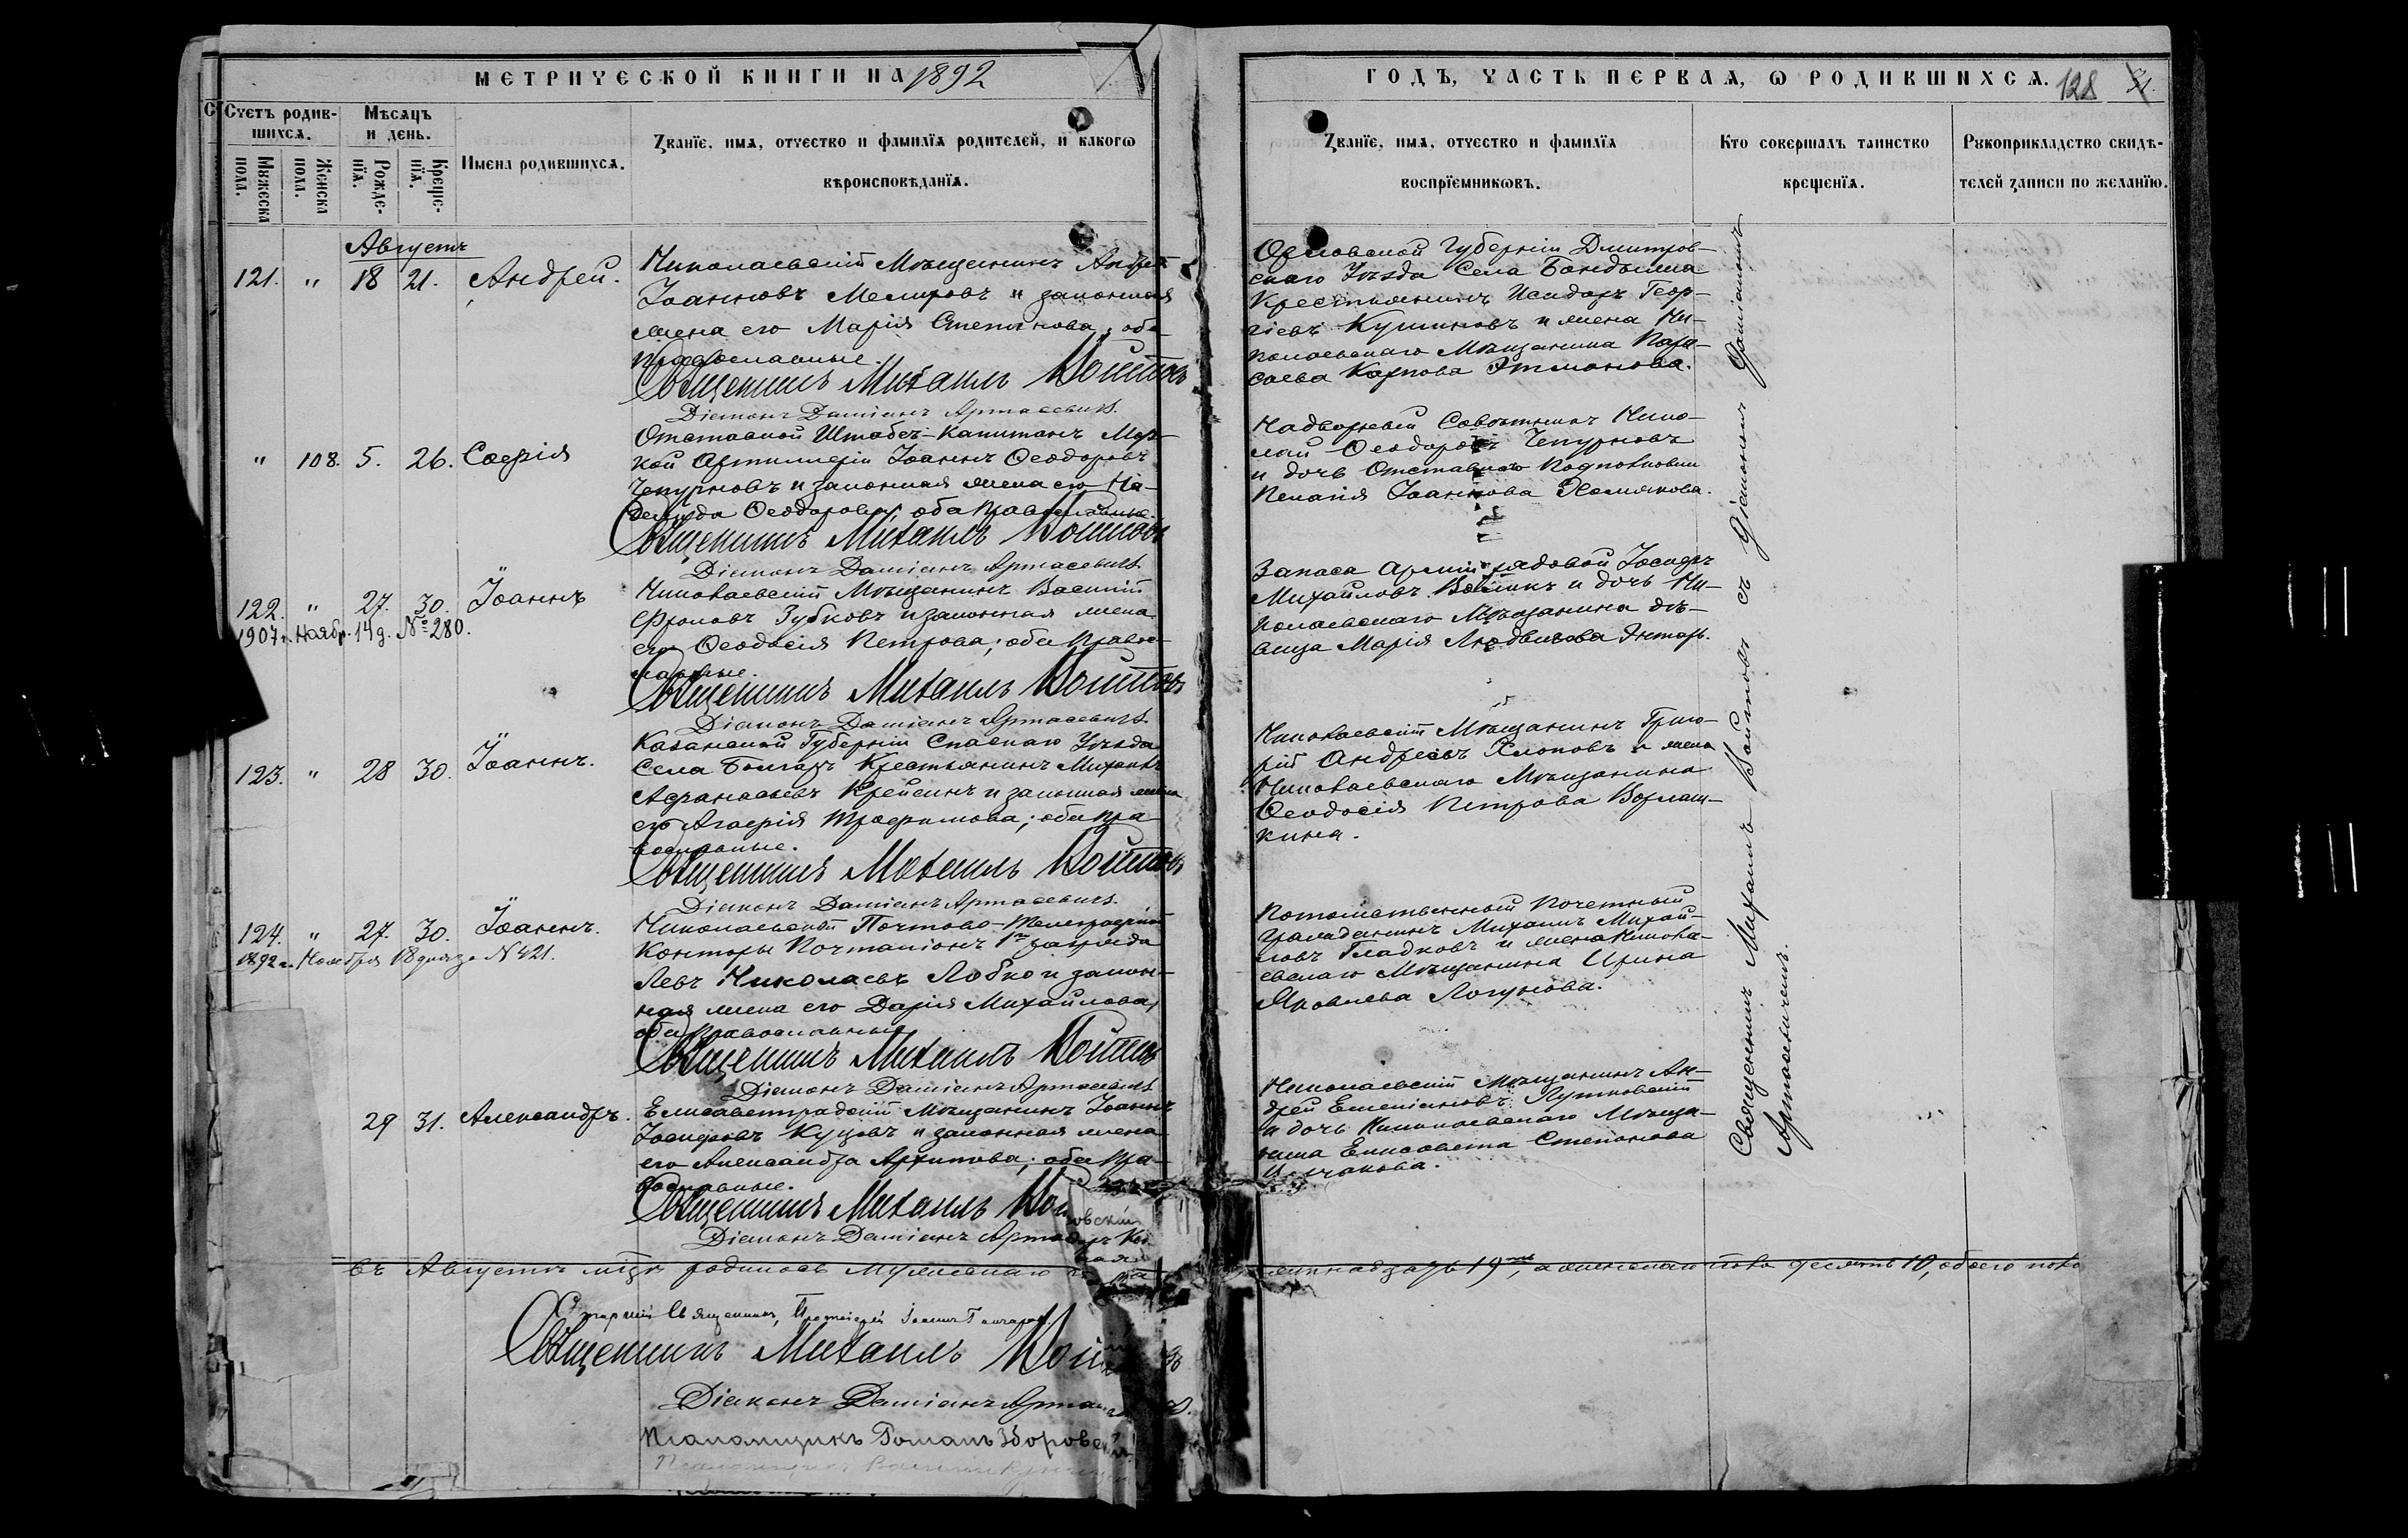 МЕТРИЧЕСКОЙ КНИГИ НА 1892
ГОДЪ, ЧАСТЬ ПЕРВАЯ, Ѡ РОДИВШИХСЯ. 128
Счетъ родив-
шихся.
Мужеска
пола.
Женска
пола.
Мѣсяцъ
и день.
Рожде-
нїя.
Креще-
нїя.
Имена родившихся.
Званїе, имя, отчество и фамилїя родителей, и какогѡ
вѣроисповѣданїя.
Званїе, имя, отчество и фамилїя
воспрїемникѡвъ.
Кто совершалъ таинство
крещенїя.
Рукоприкладство свидѣ-
телей записи по желанїю.
Августъ
121. " 18 21. Андрей.
Николаевскій Мѣщанинъ Андрей
Іоанновъ Мелировъ и законная
жена его Марія Степанова; оба
православные.
Священникъ Михаилъ Войтовъ
Діаконъ Даміанъ Артасевичъ.
Орловской Губерніи Дмитров-
скаго Уѣзда Села
Крестьянинъ Исидоръ Геор-
гіевъ и жена Ни-
колаевскаго Мѣщанина Пара-
скева Карпова Этманова.
" 108. 5. 26. Софія
Отставной Штабсъ-Капитанъ Мор-
кой Артиллеріи Іоаннъ Ѳеодоровъ
Чепурновъ и законная жена его На-
дежда Ѳеодорова; оба православные.
Священникъ Михаилъ Войтовъ
Діаконъ Даміанъ Артасевичъ.
Надворный Совѣтникъ Нико-
лай Ѳеодоровъ Чепурновъ
и дочь Отставнаго Подполковни
Пелагія Іоаннова Хомякова.
122. " 27. 30. Іоаннъ
1907 г. Ноябр. 14 д. № 280.
Николаевскій Мѣщанинъ Василій
Фроловъ Зубковъ и законная жена
его Ѳеодосія Петрова; оба правос-
лавные.
Священникъ Михаилъ Войтовъ
Діаконъ Даміанъ Артасевичъ.
Запаса Арміи рядовой Іосифъ
Михайловъ и дочь Ни-
колаевскаго Мѣщанина дѣ-
вица Марія Людвигова
123. " 28 30. Іоаннъ.
Казанской Губерніи Спаскаго Уѣзда
Села Болгаръ Крестьянинъ Михаилъ
Афанасьевъ Крейсинъ и законная жена
его Агафія Трофимова; оба пра-
вославные.
Священникъ Михаилъ Войтовъ
Діаконъ Даміанъ Артасевичъ.
Николаевскій Мѣщанинъ Григо-
рій Андреевъ Хлоповъ и жена
Николаевскаго Мѣщанина
Ѳеодосія Петрова Вормаш-
кина.
124. " 27. 30. Іоаннъ.
1892 г. Ноября 18 дня за N 421.
Николаевской Почтово-Телеграфной
Конторы Почталіонъ 1го разряда
Левъ Николаевъ Лобко и закон-
ная жена его Дарія Михайлова,
оба православные
Священникъ Михаилъ Войтовъ
Діаконъ Даміанъ Артасевичъ.
Потомственный Почетный
Гражданинъ Михаилъ Михай-
ловъ Гладковъ и жена Никола-
евскаго Мѣщанина Ирина
Яковлева Логунова.
29 31. Александръ.
Елисаветградскій Мѣщанинъ Іоаннъ
Іосифовъ Куцовъ и законная жена
его Александра Архипова; оба пра-
вославные.
Священникъ Михаилъ Вой
Діаконъ Даміанъ Арта
Николаевскій Мѣщанинъ Ан-
дрей Емеліановъ Лутковскій
и дочь Николаевскаго Мѣща-
нина Елисавета Степанова
Священникъ Михаилъ Войтовъ съ Діакономъ Даміаномъ
Артасевичемъ.
въ Августѣ мцѣ родилось мужескаго
19ть, а женскаго пола десять 10, обоего пола
Старшій Священникъ, Протоіерей Іоаннъ Гончаров
Священникъ Михаилъ Вой
Діаконъ Даміанъ Арта
Псаломщикъ Романъ Зборовс